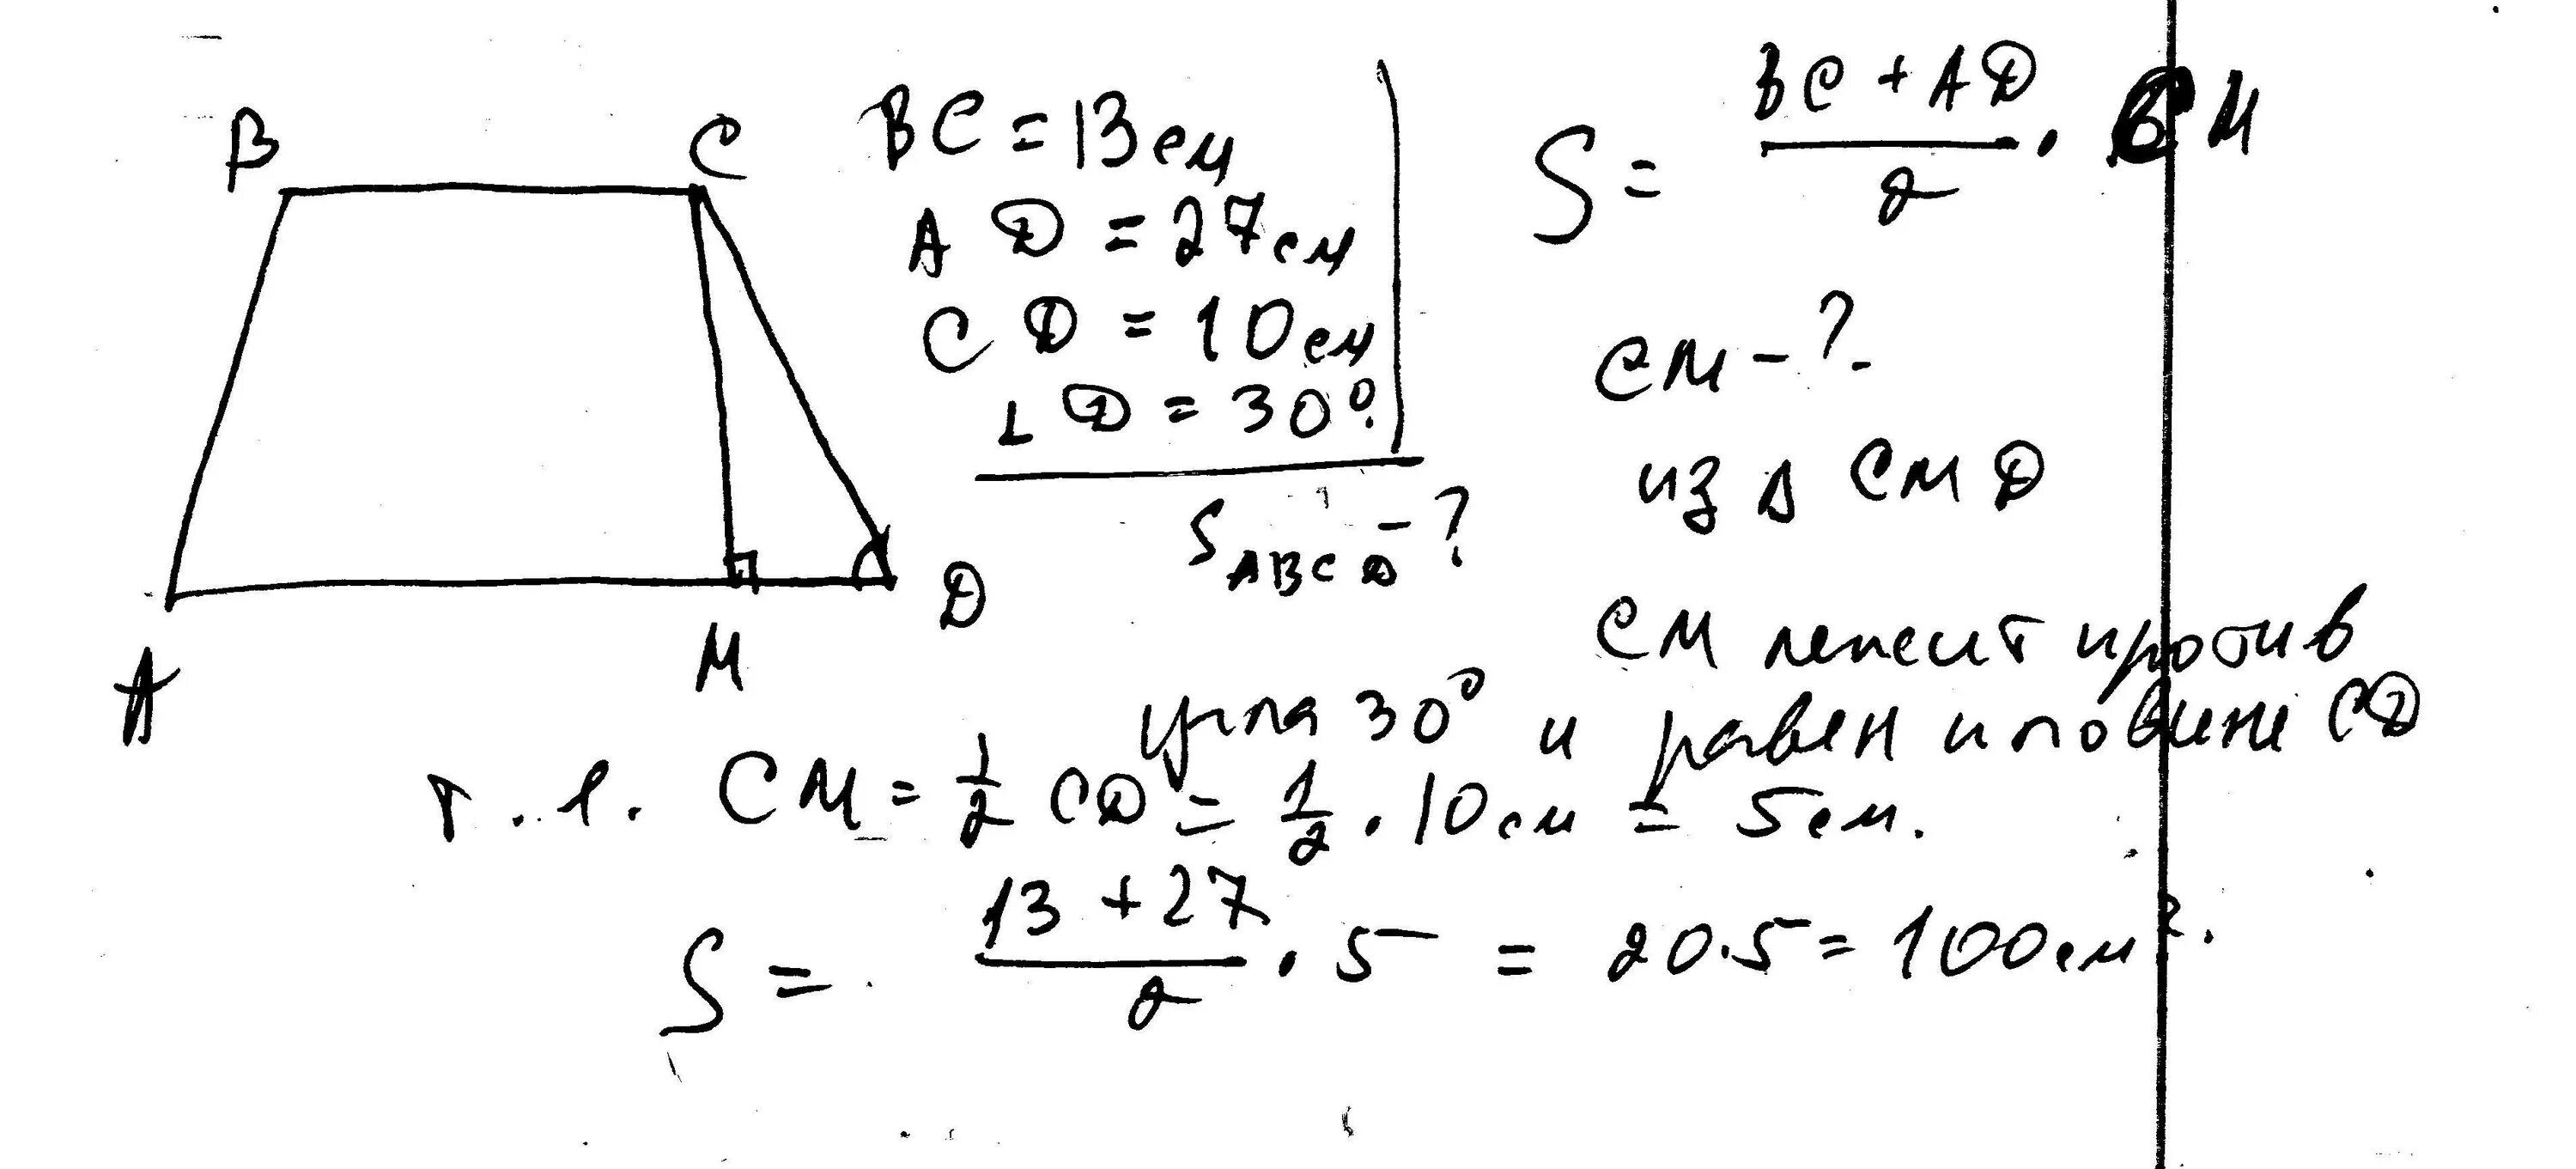 B
C
BC = 13см
AD = 27см
CD = 10см
∠D = 30°
S ABCD - ?
A
M
D
S = (BC + AD)/2 · CM
CM - ?
из Δ CMD
CM лежит против
угла 30° и равен половине CD
т.е. CM = 1/2 CD = 1/2 · 10см = 5см.
S = (13 + 27)/2 · 5 = 20·5 = 100см².